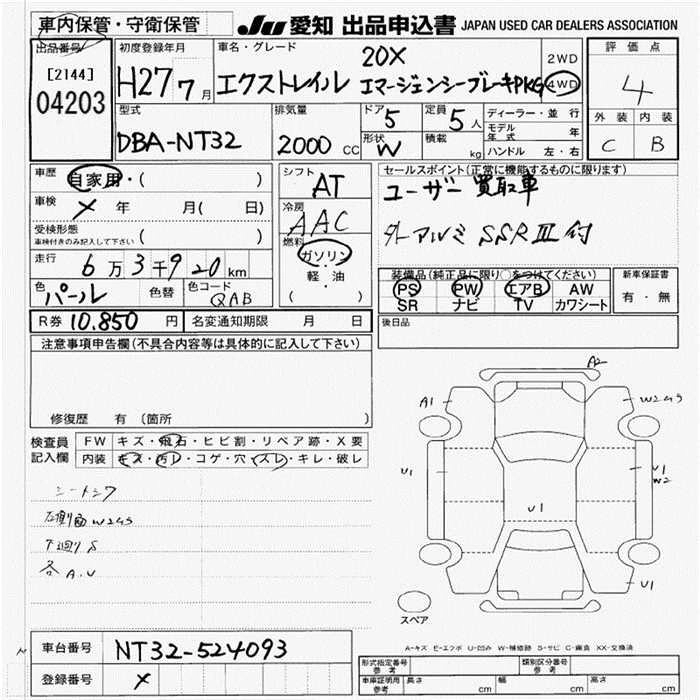 車内保管・守衛保管
JU 愛知 出品申込書 JAPAN USED CAR DEALERS ASSOCIATION
出品番号
[2144]
04203
初度登録年月
H27 7月
車名・グレード
20X
エクストレイル エマージェンシーブレーキPKG
2WD
4WD
評価点
4
外装 内装
C B
型式
DBA-NT32
排気量
2000 CC
ドア 5
形状 W
定員 5 人
積載 kg
ディーラー・並行
モデル年式 年
ハンドル 左・右
車歴 自家用・( )
車検 メ 年 月( 日)
受検形態
車検付きのみ記入して下さい ( )
走行 6万3千920km
色 パール 色替
色コード QAB
シフト
AT
冷房
AAC
燃料
ガソリン
軽・油
( )
セールスポイント(正常に機能するものに限ります)
ユーザー買取車
外アルミ SSRⅢ付
装備品(純正品に限り○をつけてください)
PS PW エアB AW
SR ナビ TV カワシート
新車保証書
有・無
R券 10.850 円
名変通知期限 月 日
後日品
注意事項申告欄(不具合内容等は具体的に記入して下さい)
修復歴 有 (箇所 )
検査員
記入欄
FW キズ・飛石・ヒビ割・リペア跡・X要
内装 キズ・汚レ・コゲ・穴・スレ・キレ・破レ
シートシワ
左側面W2 4S
下廻りS
各A.U
A2
A1
W2 4S
U1
U1
W2
U1
U1
スペア
A-キズ E-エクボ U-凹み W-補修跡 S-サビ C-腐食 XX-交換済
車台番号 NT32-524093
登録番号 メ
形式指定番号
参考
類別区分番号
参考
車庫証明用
参考
長さ cm
幅 cm
高さ cm